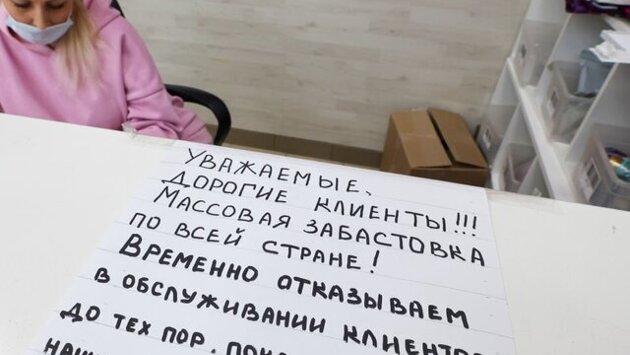 УВАЖАЕМЫЕ,
ДОРОГИЕ КЛИЕНТЫ!!!
МАССОВАЯ ЗАБАСТОВКА
ПО ВСЕЙ СТРАНЕ!
ВРЕМЕННО ОТКАЗЫВАЕМ
В ОБСЛУЖИВАНИИ
ДО ТЕХ ПОР,